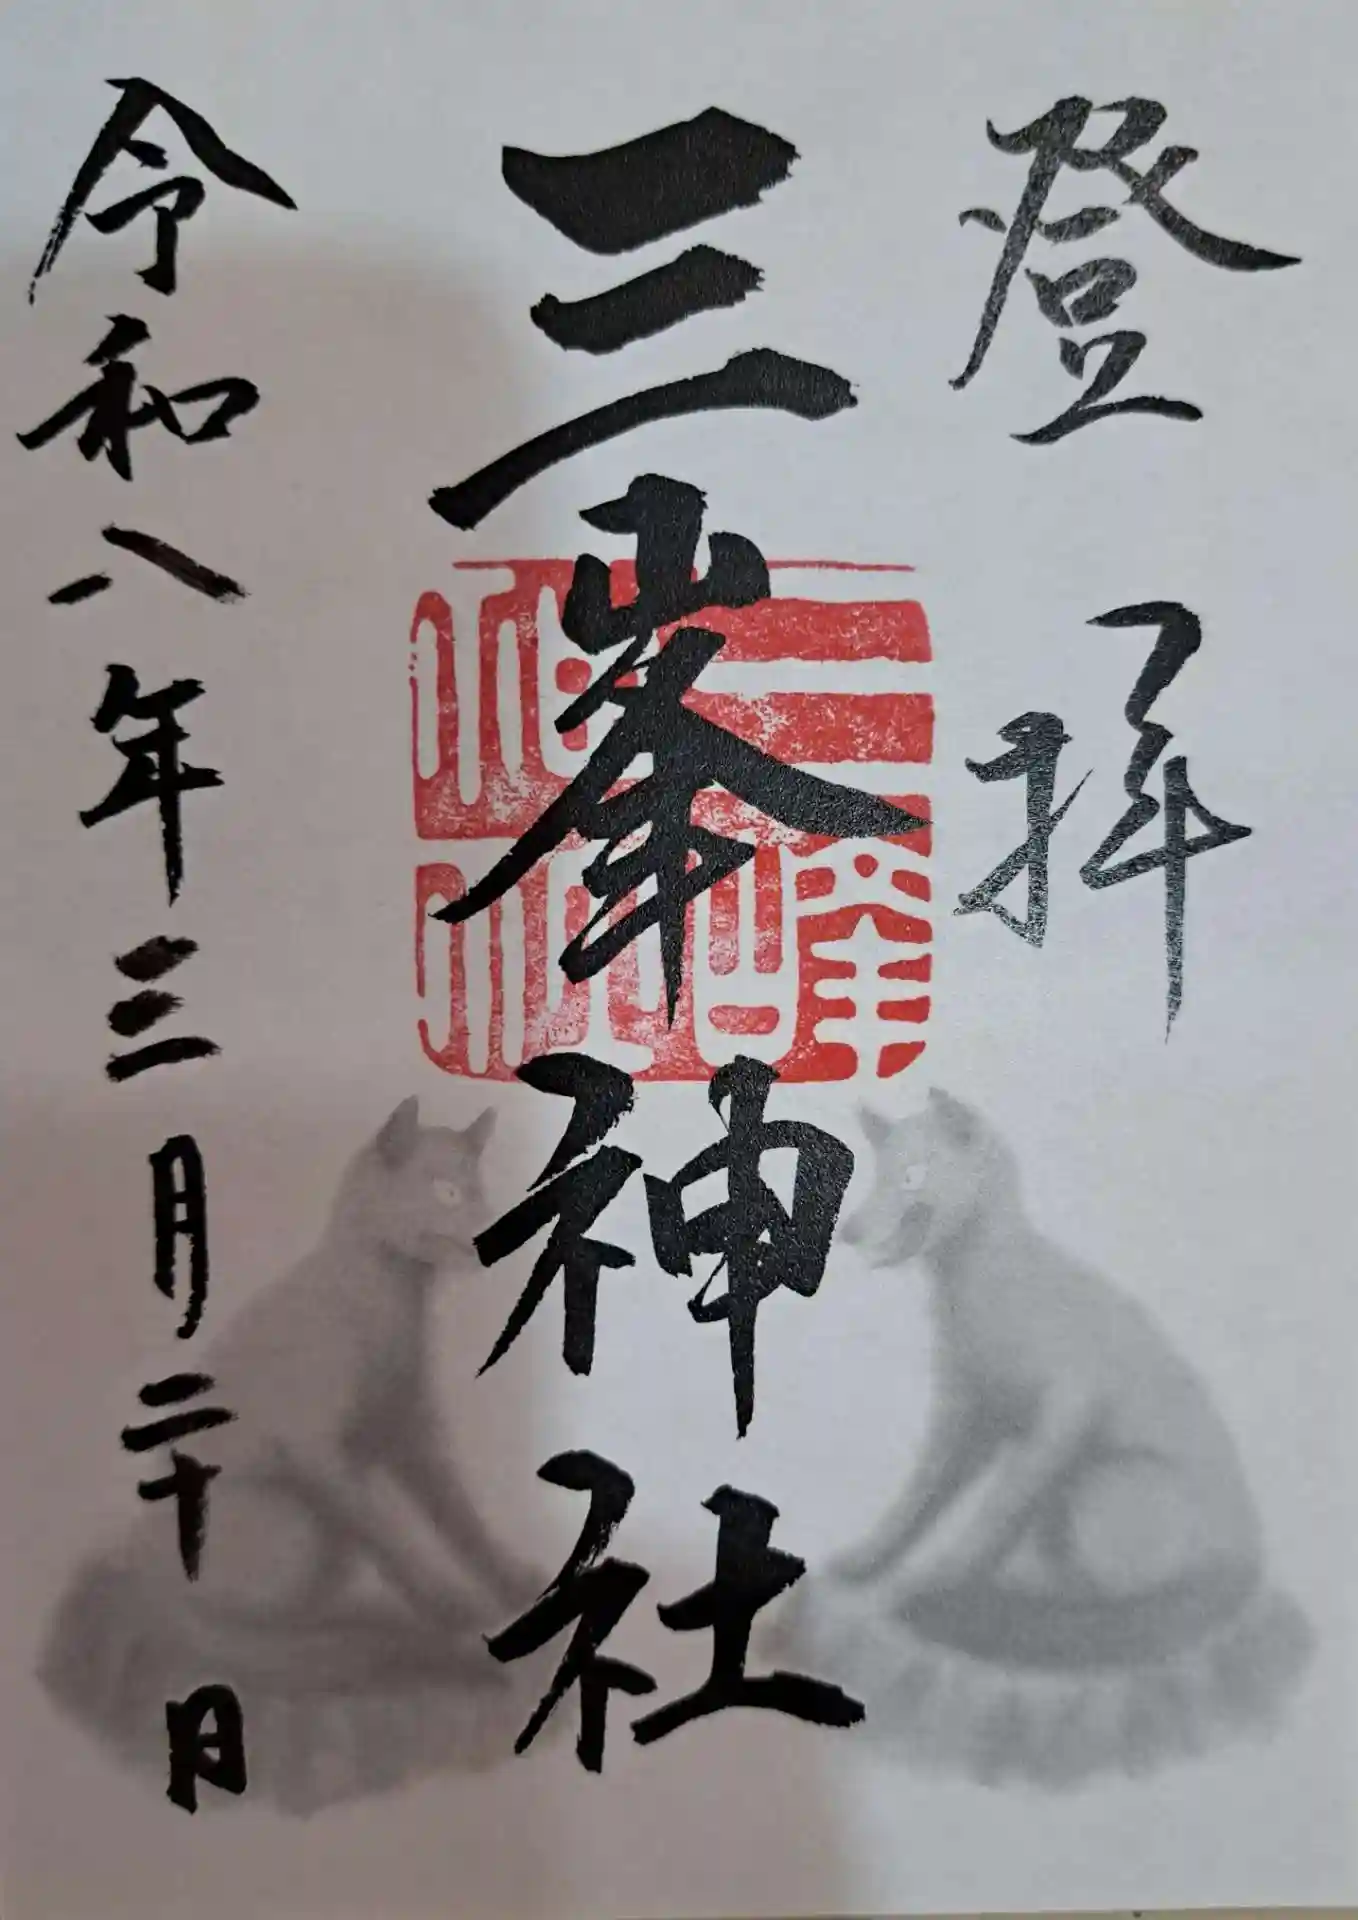 登拝
三峯神社
三峰神社
令和八年三月二十日